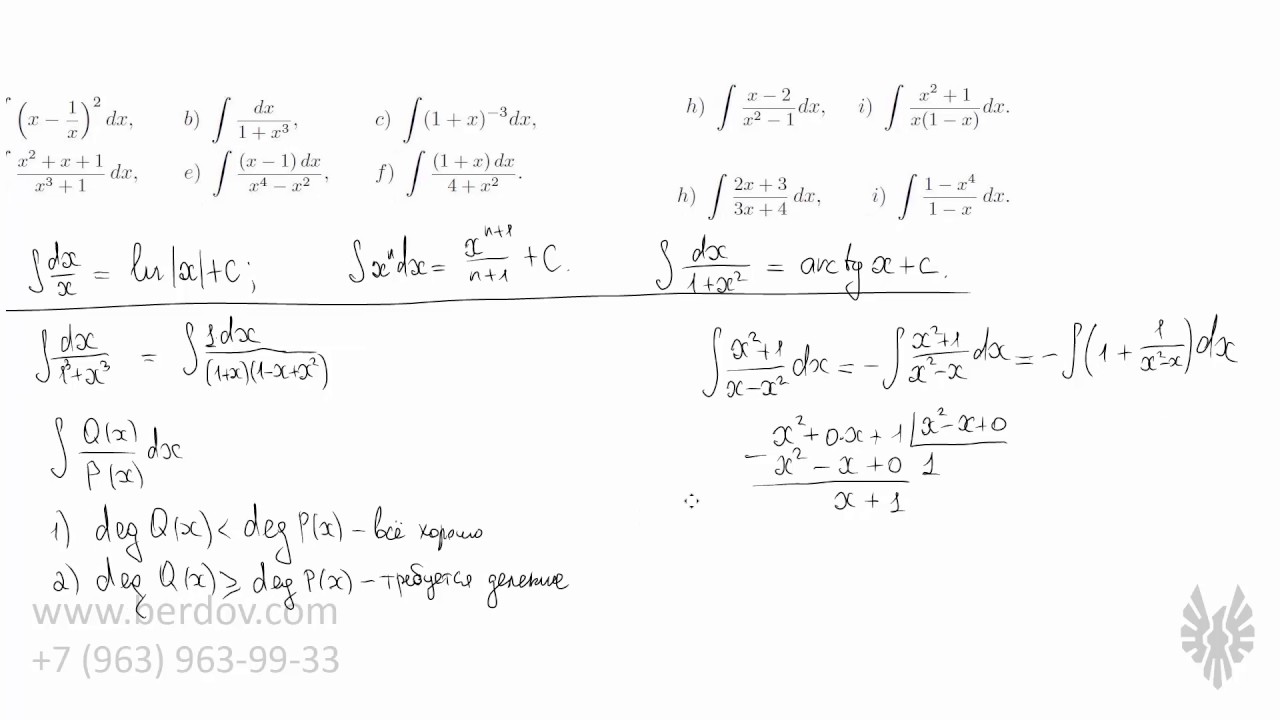 (x − 1/x)² dx, b) ∫ dx/(1 + x³), c) ∫ (1 + x)⁻³ dx,
(x² + x + 1)/(x³ + 1) dx, e) ∫ (x − 1) dx/(x⁴ − x²), f) ∫ (1 + x) dx/(4 + x²).
h) ∫ (x − 2)/(x² − 1) dx, i) ∫ (x² + 1)/(x(1 − x)) dx.
h) ∫ (2x + 3)/(3x + 4) dx, i) ∫ (1 − x⁴)/(1 − x) dx.
∫ dx/x = ln|x| + C; ∫ xⁿdx = xⁿ⁺¹/(n+1) + C. ∫ dx/(1+x²) = arctg x + C.
∫ dx/(1³+x³) = ∫ 1dx/((1+x)(1−x+x²))
∫ Q(x)/P(x) dx
1) deg Q(x) < deg P(x) – всё хорошо
2) deg Q(x) ≥ deg P(x) – требуется деление
∫ (x²+1)/(x−x²) dx = −∫ (x²+1)/(x²−x) dx = −∫ (1 + 1/(x²−x)) dx
x² + 0·x + 1 | x² − x + 0
− x² − x + 0 1
x + 1
www.berdov.com
+7 (963) 963-99-33